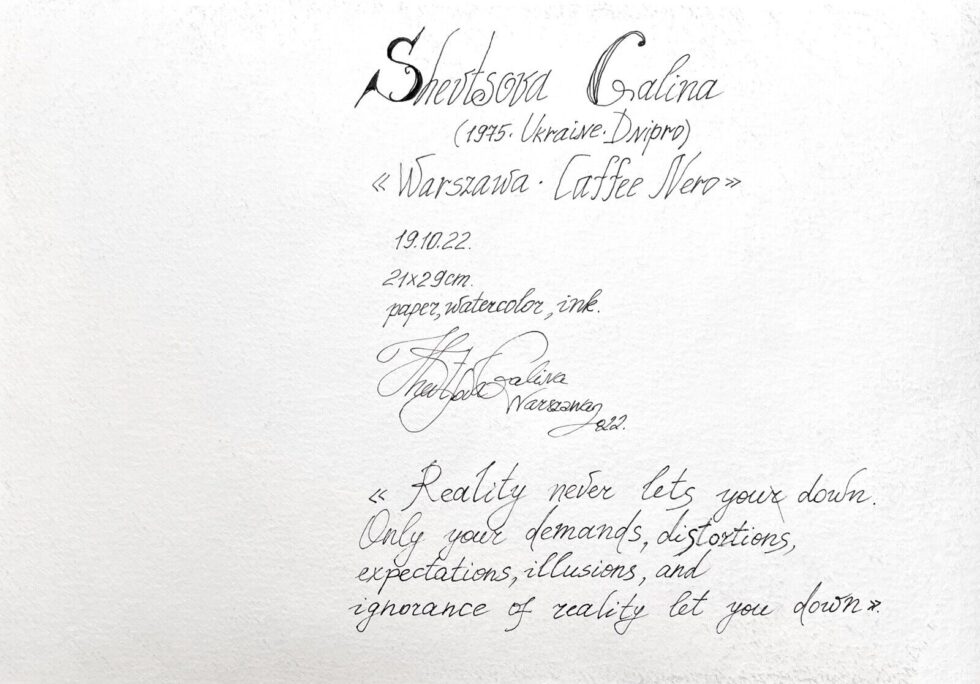 Shevtsova Galina
(1975. Ukraine. Dnipro)
«Warszawa. Caffee Nero»
19.10.22.
21x29cm.
paper, watercolor, ink.
Shevtsova Galina
Warszawa
022.
« Reality never lets your down.
Only your demands, distortions,
expectations, illusions, and
ignorance of reality let you down».